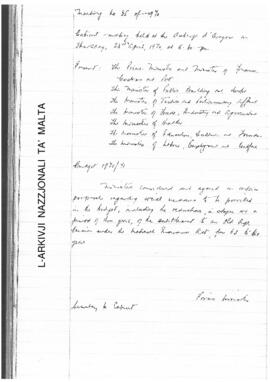 Meeting No 35 of 1970
Cabinet meeting held at the Auberge d'Aragon on
Thursday, 23rd April, 1970 at 6.30 pm.
Present: The Prime Minister and Minister of Finance
Customs and Port
The Minister of Public Building and Works
The Minister of Justice and Parliamentary Affairs
The Minister of Trade, Industry and Agriculture
The Minister of Health
The Minister of Education, Culture and Tourism
The Minister of Labour, Employment and Welfare
Budget 1970/71
Ministers considered and agreed on certain
proposals regarding social measures to be provided
in the Budget, including the reduction, in stages over a
period of three years, of the entitlement to an Old Age
Pension under the National Insurance Act, from 65 to
years
Prime Minister
Secretary to Cabinet
L-ARKIVJI NAZZJONALI TA' MALTA